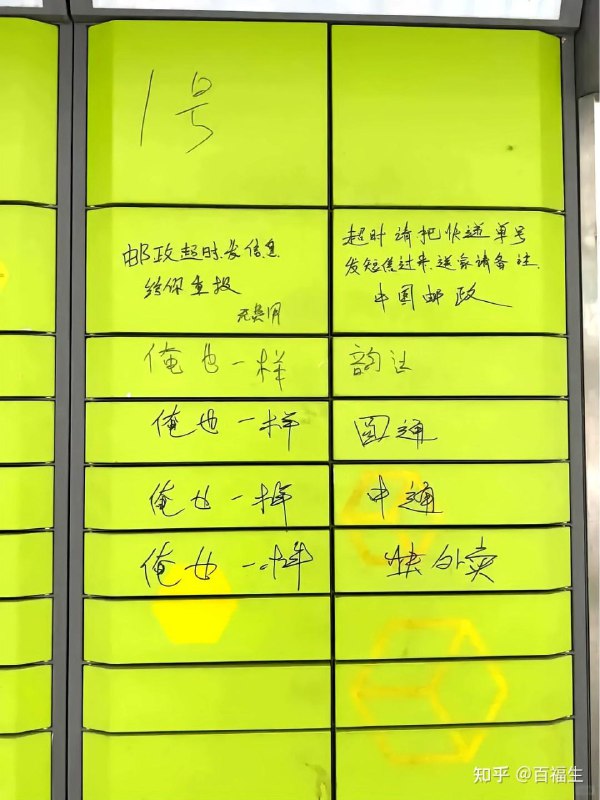 1号
邮政超时发信息
给你重投
无费用
超时请把快递单号
发短信过来,送家请备注.
中国邮政
俺也一样
韵达
俺也一样
圆通
俺也一样
中通
俺也一样
外卖
知乎 @百福生